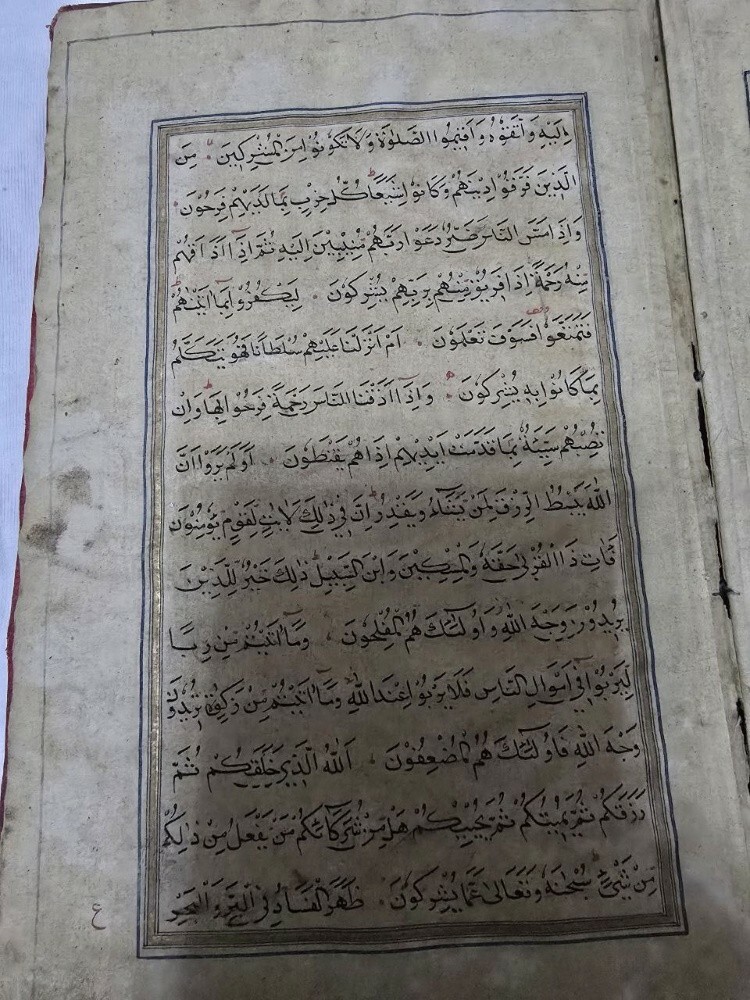 اِلَيْهِ وَاتَّقُوْهُ وَاَقِيْمُوا الصَّلٰوةَ وَلَا تَكُوْنُوْا مِنَ الْمُشْرِكِيْنَ مِنَ
الَّذِيْنَ فَرَّقُوْا دِيْنَهُمْ وَكَانُوْا شِيَعًا كُلُّ حِزْبٍ بِمَا لَدَيْهِمْ فَرِحُوْنَ
وَاِذَا مَسَّ النَّاسَ ضُرٌّ دَعَوْا رَبَّهُمْ مُنِيْبِيْنَ اِلَيْهِ ثُمَّ اِذَا اَذَاقَهُمْ
مِنْهُ رَحْمَةً اِذَا فَرِيْقٌ مِنْهُمْ بِرَبِّهِمْ يُشْرِكُوْنَ لِيَكْفُرُوْا بِمَا اٰتَيْنٰهُمْ
فَتَمَتَّعُوْا فَسَوْفَ تَعْلَمُوْنَ اَمْ اَنْزَلْنَا عَلَيْهِمْ سُلْطَانًا فَهُوَ يَتَكَلَّمُ
بِمَا كَانُوْا بِهٖ يُشْرِكُوْنَ وَاِذَا اَذَقْنَا النَّاسَ رَحْمَةً فَرِحُوْا بِهَا وَاِنْ
تُصِبْهُمْ سَيِّئَةٌ بِمَا قَدَّمَتْ اَيْدِيْهِمْ اِذَا هُمْ يَقْنَطُوْنَ اَوَلَمْ يَرَوْا اَنَّ
اللّٰهَ يَبْسُطُ الرِّزْقَ لِمَنْ يَشَاءُ وَيَقْدِرُ اِنَّ فِيْ ذٰلِكَ لَاٰيٰتٍ لِقَوْمٍ يُؤْمِنُوْنَ
فَاٰتِ ذَا الْقُرْبٰى حَقَّهٗ وَالْمِسْكِيْنَ وَابْنَ السَّبِيْلِ ذٰلِكَ خَيْرٌ لِلَّذِيْنَ
يُرِيْدُوْنَ وَجْهَ اللّٰهِ وَاُولٰئِكَ هُمُ الْمُفْلِحُوْنَ وَمَا اٰتَيْتُمْ مِنْ رِبًا
لِيَرْبُوَا فِيْ اَمْوَالِ النَّاسِ فَلَا يَرْبُوْا عِنْدَ اللّٰهِ وَمَا اٰتَيْتُمْ مِنْ زَكٰوةٍ تُرِيْدُوْنَ
وَجْهَ اللّٰهِ فَاُولٰئِكَ هُمُ الْمُضْعِفُوْنَ اَللّٰهُ الَّذِيْ خَلَقَكُمْ ثُمَّ
رَزَقَكُمْ ثُمَّ يُمِيْتُكُمْ ثُمَّ يُحْيِيْكُمْ هَلْ مِنْ شُرَكَائِكُمْ مَنْ يَفْعَلُ مِنْ ذٰلِكُمْ
مِنْ شَيْءٍ سُبْحٰنَهٗ وَتَعَالٰى عَمَّا يُشْرِكُوْنَ ظَهَرَ الْفَسَادُ فِي الْبَرِّ وَالْبَحْرِ
ع